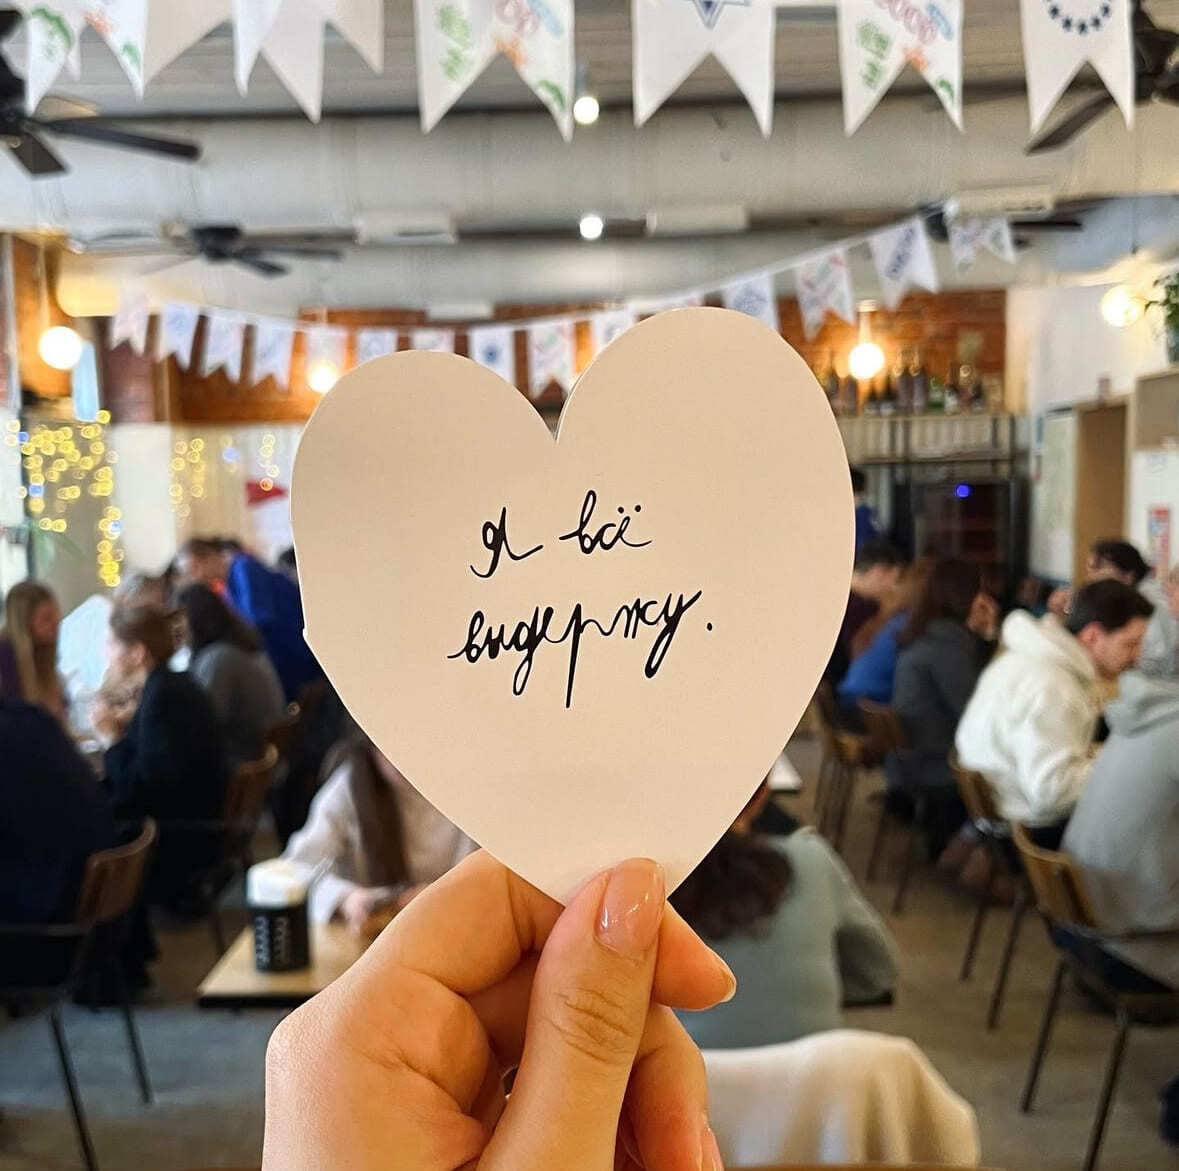 Я всё
выдержу.